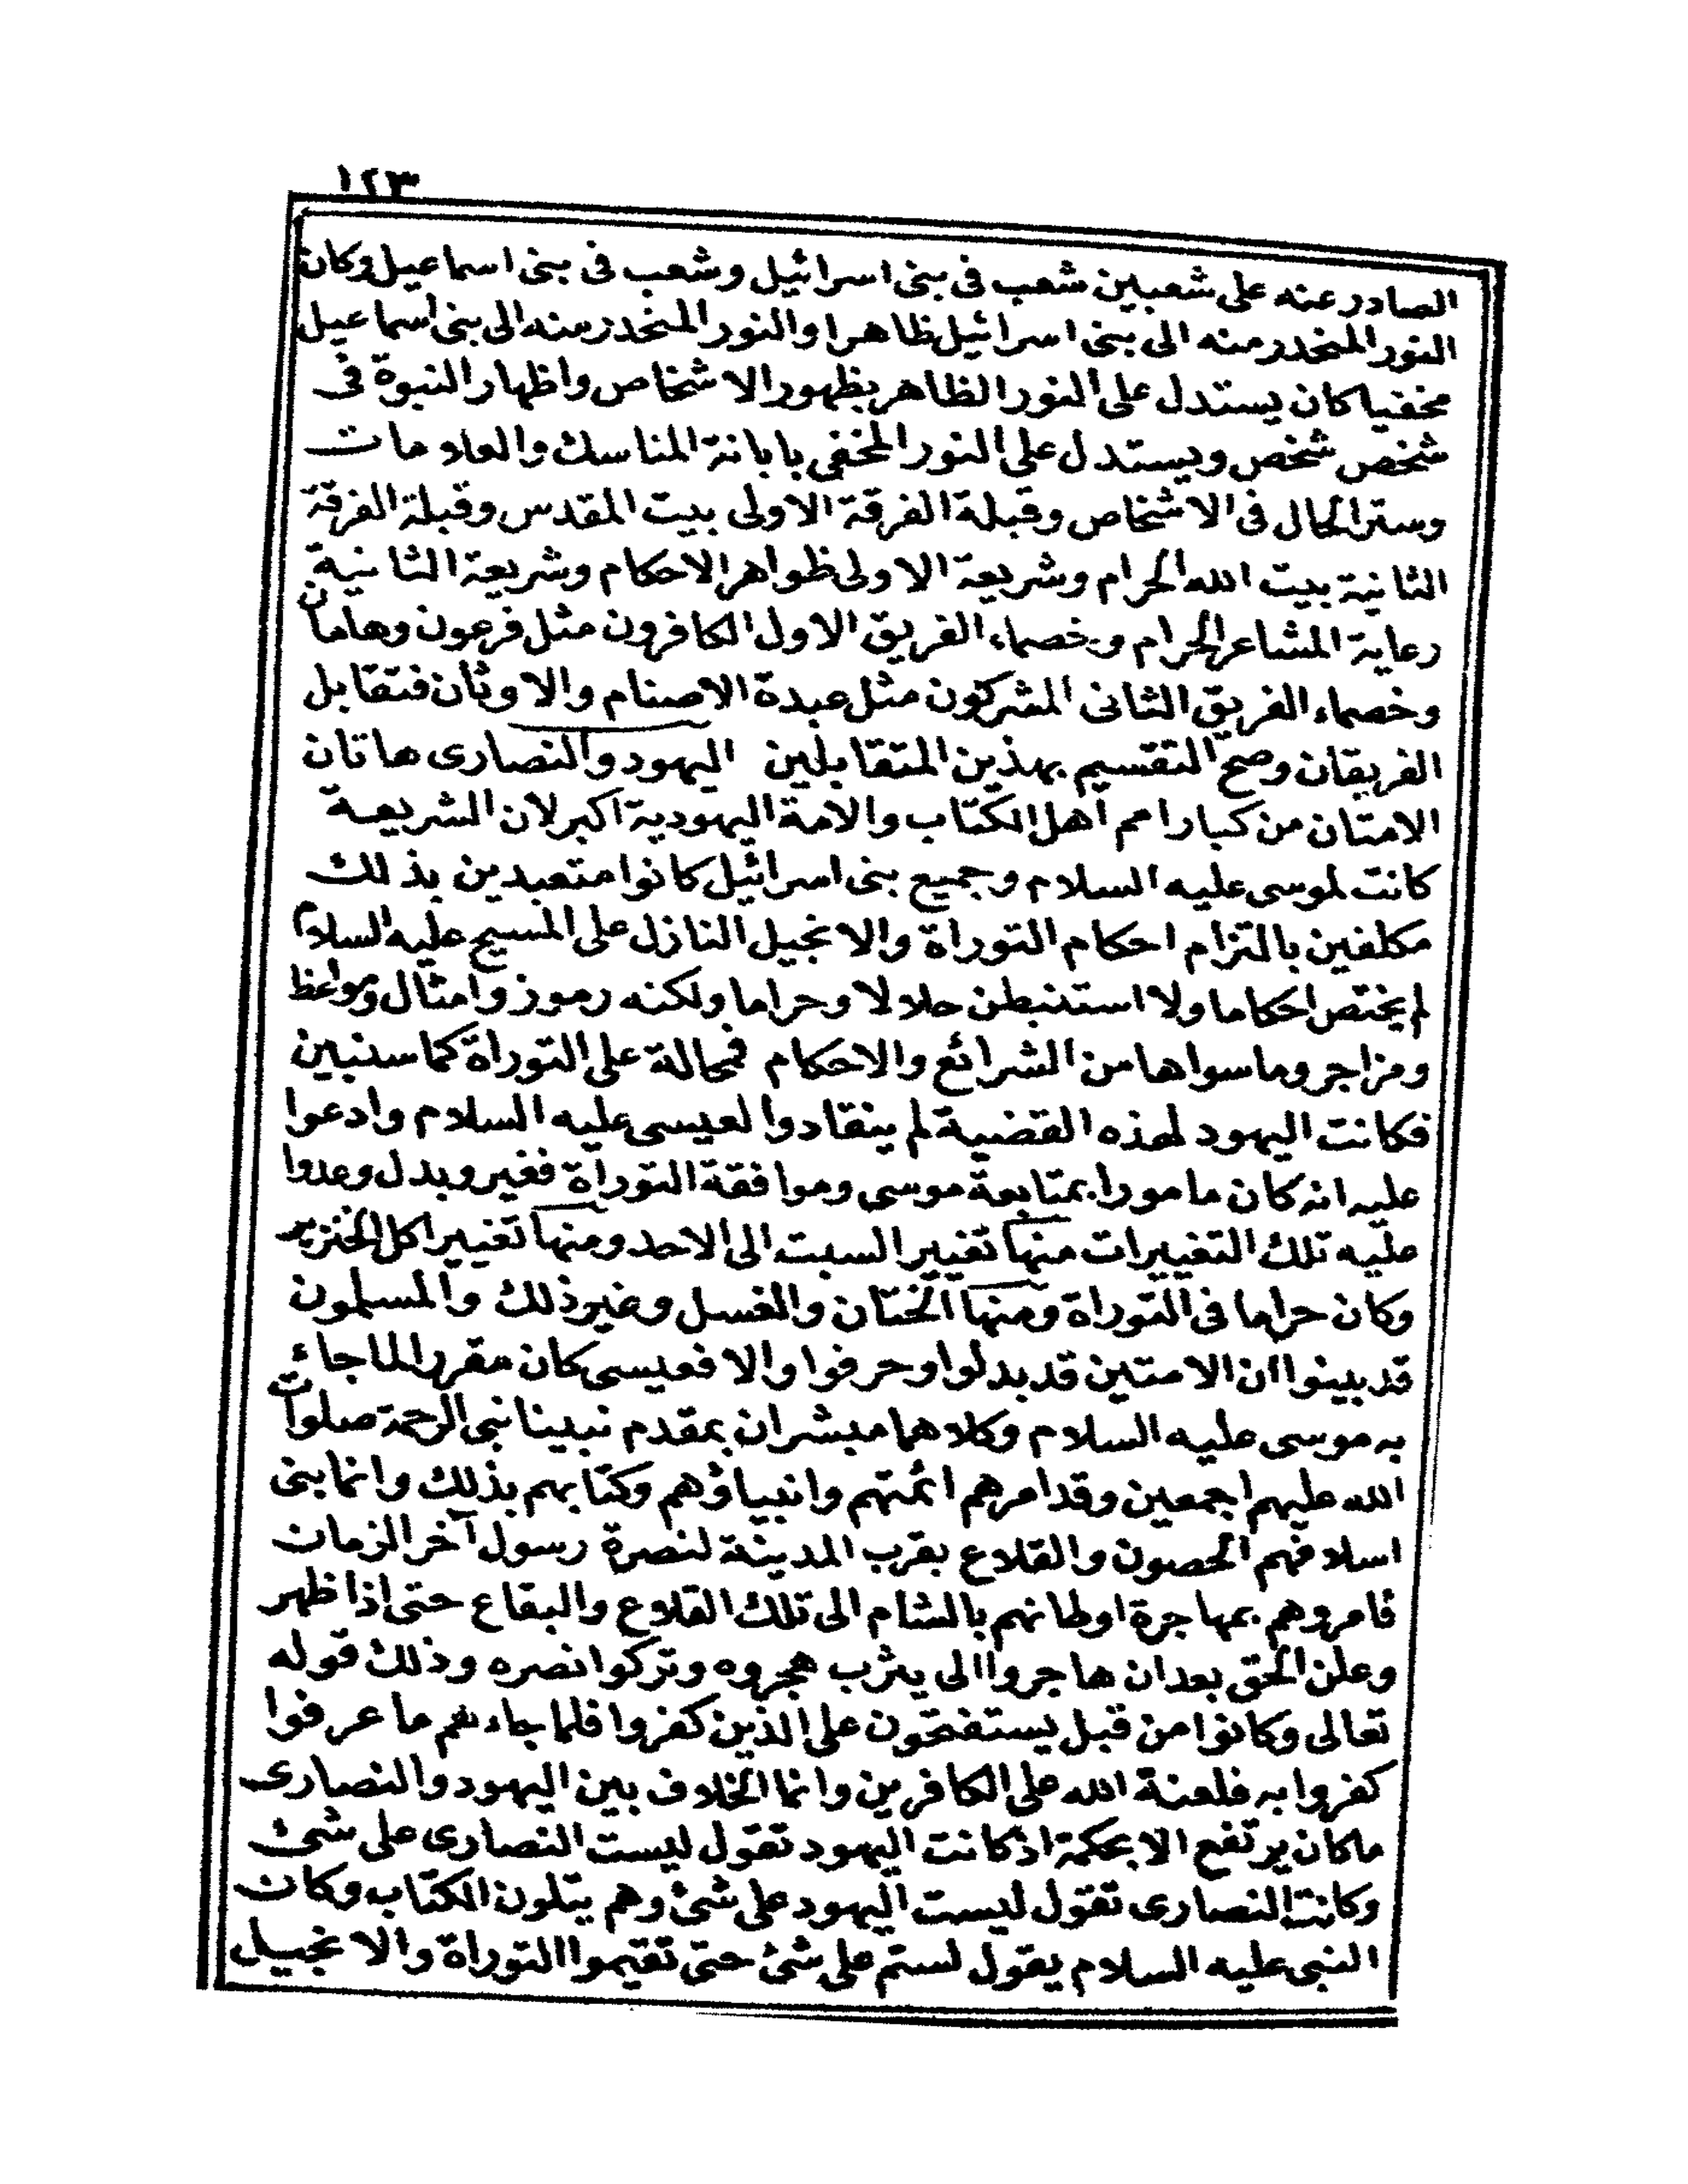 ١٢٣
الصادر عنه على شعبين شعب فى بنى اسرائيل وشعب فى بنى اسماعيل وكان
النور المنحدر منه الى بنى اسرائيل ظاهرا والنور المنحدر منه الى بنى اسماعيل
مخفيا كان يستدل على النور الظاهر بظهور الاشخاص واظهار النبوة فى
شخص شخص ويستدل على النور المخفى بابانة المناسك والعلامات
وستر الحال فى الاشخاص وقبلة الفرقة الاولى بيت المقدس وقبلة الفرقة
الثانية بيت الله الحرام وشريعة الاولى ظواهر الاحكام وشريعة الثانية
رعاية المشاعر الحرام وخصماء الفريق الاول الكافرون مثل فرعون وهامان
وخصماء الفريق الثانى المشركون مثل عبدة الاصنام والاوثان فتقابل
الفريقان وصح التقسيم بهذين المتقابلين اليهود والنصارى هاتان
الامتان من كبار امم اهل الكتاب والامة اليهودية اكبر لان الشريعة
كانت لموسى عليه السلام وجميع بنى اسرائيل كانوا متعبدين بذلك
مكلفين بالتزام احكام التوراة والانجيل النازل على المسيح عليه السلام
لم يختص احكاما ولا استنبطن حلالا وحراما ولكنه رموز وامثال ومواعظ
ومزاجر وما سواها من الشرائع والاحكام فمحالة على التوراة كما سنبين
فكانت اليهود لهذه القضية لم ينقادوا لعيسى عليه السلام وادعوا
عليه انه كان مامورا بمتابعة موسى وموافقة التوراة فغير وبدل وعدوا
عليه تلك التغييرات منها تغيير السبت الى الاحد ومنها تغيير اكل الخنزير
وكان حراما فى التوراة ومنها الختان والغسل وغير ذلك والمسلمون
قد بينوا ان الامتين قد بدلوا وحرفوا والا فعيسى كان مقررا لما جاء
به موسى عليه السلام وكلاهما مبشران بمقدم نبينا نبى الرحمة صلوات
الله عليهم اجمعين وقد امرهم ائمتهم وانبياؤهم وكتابهم بذلك وانما بنى
اسلافهم الحصون والقلاع بقرب المدينة لنصرة رسول آخر الزمان
فامروهم بمهاجرة اوطانهم بالشام الى تلك القلاع والبقاع حتى اذا ظهر
وعلن الحق بعد ان هاجروا الى يثرب هجروه وتركوا نصره وذلك قوله
تعالى وكانوا من قبل يستفتحون على الذين كفروا فلما جاءهم ما عرفوا
كفروا به فلعنة الله على الكافرين وانما الخلاف بين اليهود والنصارى
ماكان يرتفع الا بحكمة اذ كانت اليهود تقول ليست النصارى على شئ
وكانت النصارى تقول ليست اليهود على شئ وهم يتلون الكتاب وكان
النبى عليه السلام يقول لستم على شئ حتى تقيموا التوراة والانجيل